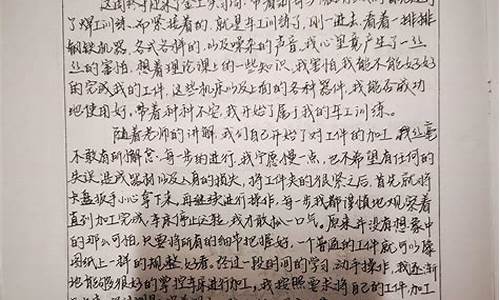 这周终于迎来了金工实习周,带着新奇
了焊工训练。而紧接着的,就是车工训练了,刚一进去,看着一排排
钢铁机器,各式各样的,以及嘈杂的声音,我心里竟产生了一丝
丝的害怕,想着理论课上的一些知识,我害怕我能不能好好
的完成我的工件,这些机床以及上面的各种器件,我能否成功
地使用好,带着种种不安,我开始了属于我的车工训练。
随着老师的讲解,我们自己开始了对工件的加工,我丝毫
不敢有所懈怠,每一步的进行,我宁愿慢一点,也不希望有任何的
失误,造成器材以及人身的损失,将工件夹的很紧之后,首先就将
卡盘扳手小心拿下来,再继续进行操作,每一步我都谨慎地观察着
直到加工完成,车床停止运转,我才敢松一口气。原来并没有想象中
的那么可怕,只要将所有的细节把握好,一个普通的工件就可以像
图纸上一样的规整、好看。经过一段时间的学习、动手操作,我逐渐
地能够很好的掌控车床进行加工,我按照需求将自己的工件加